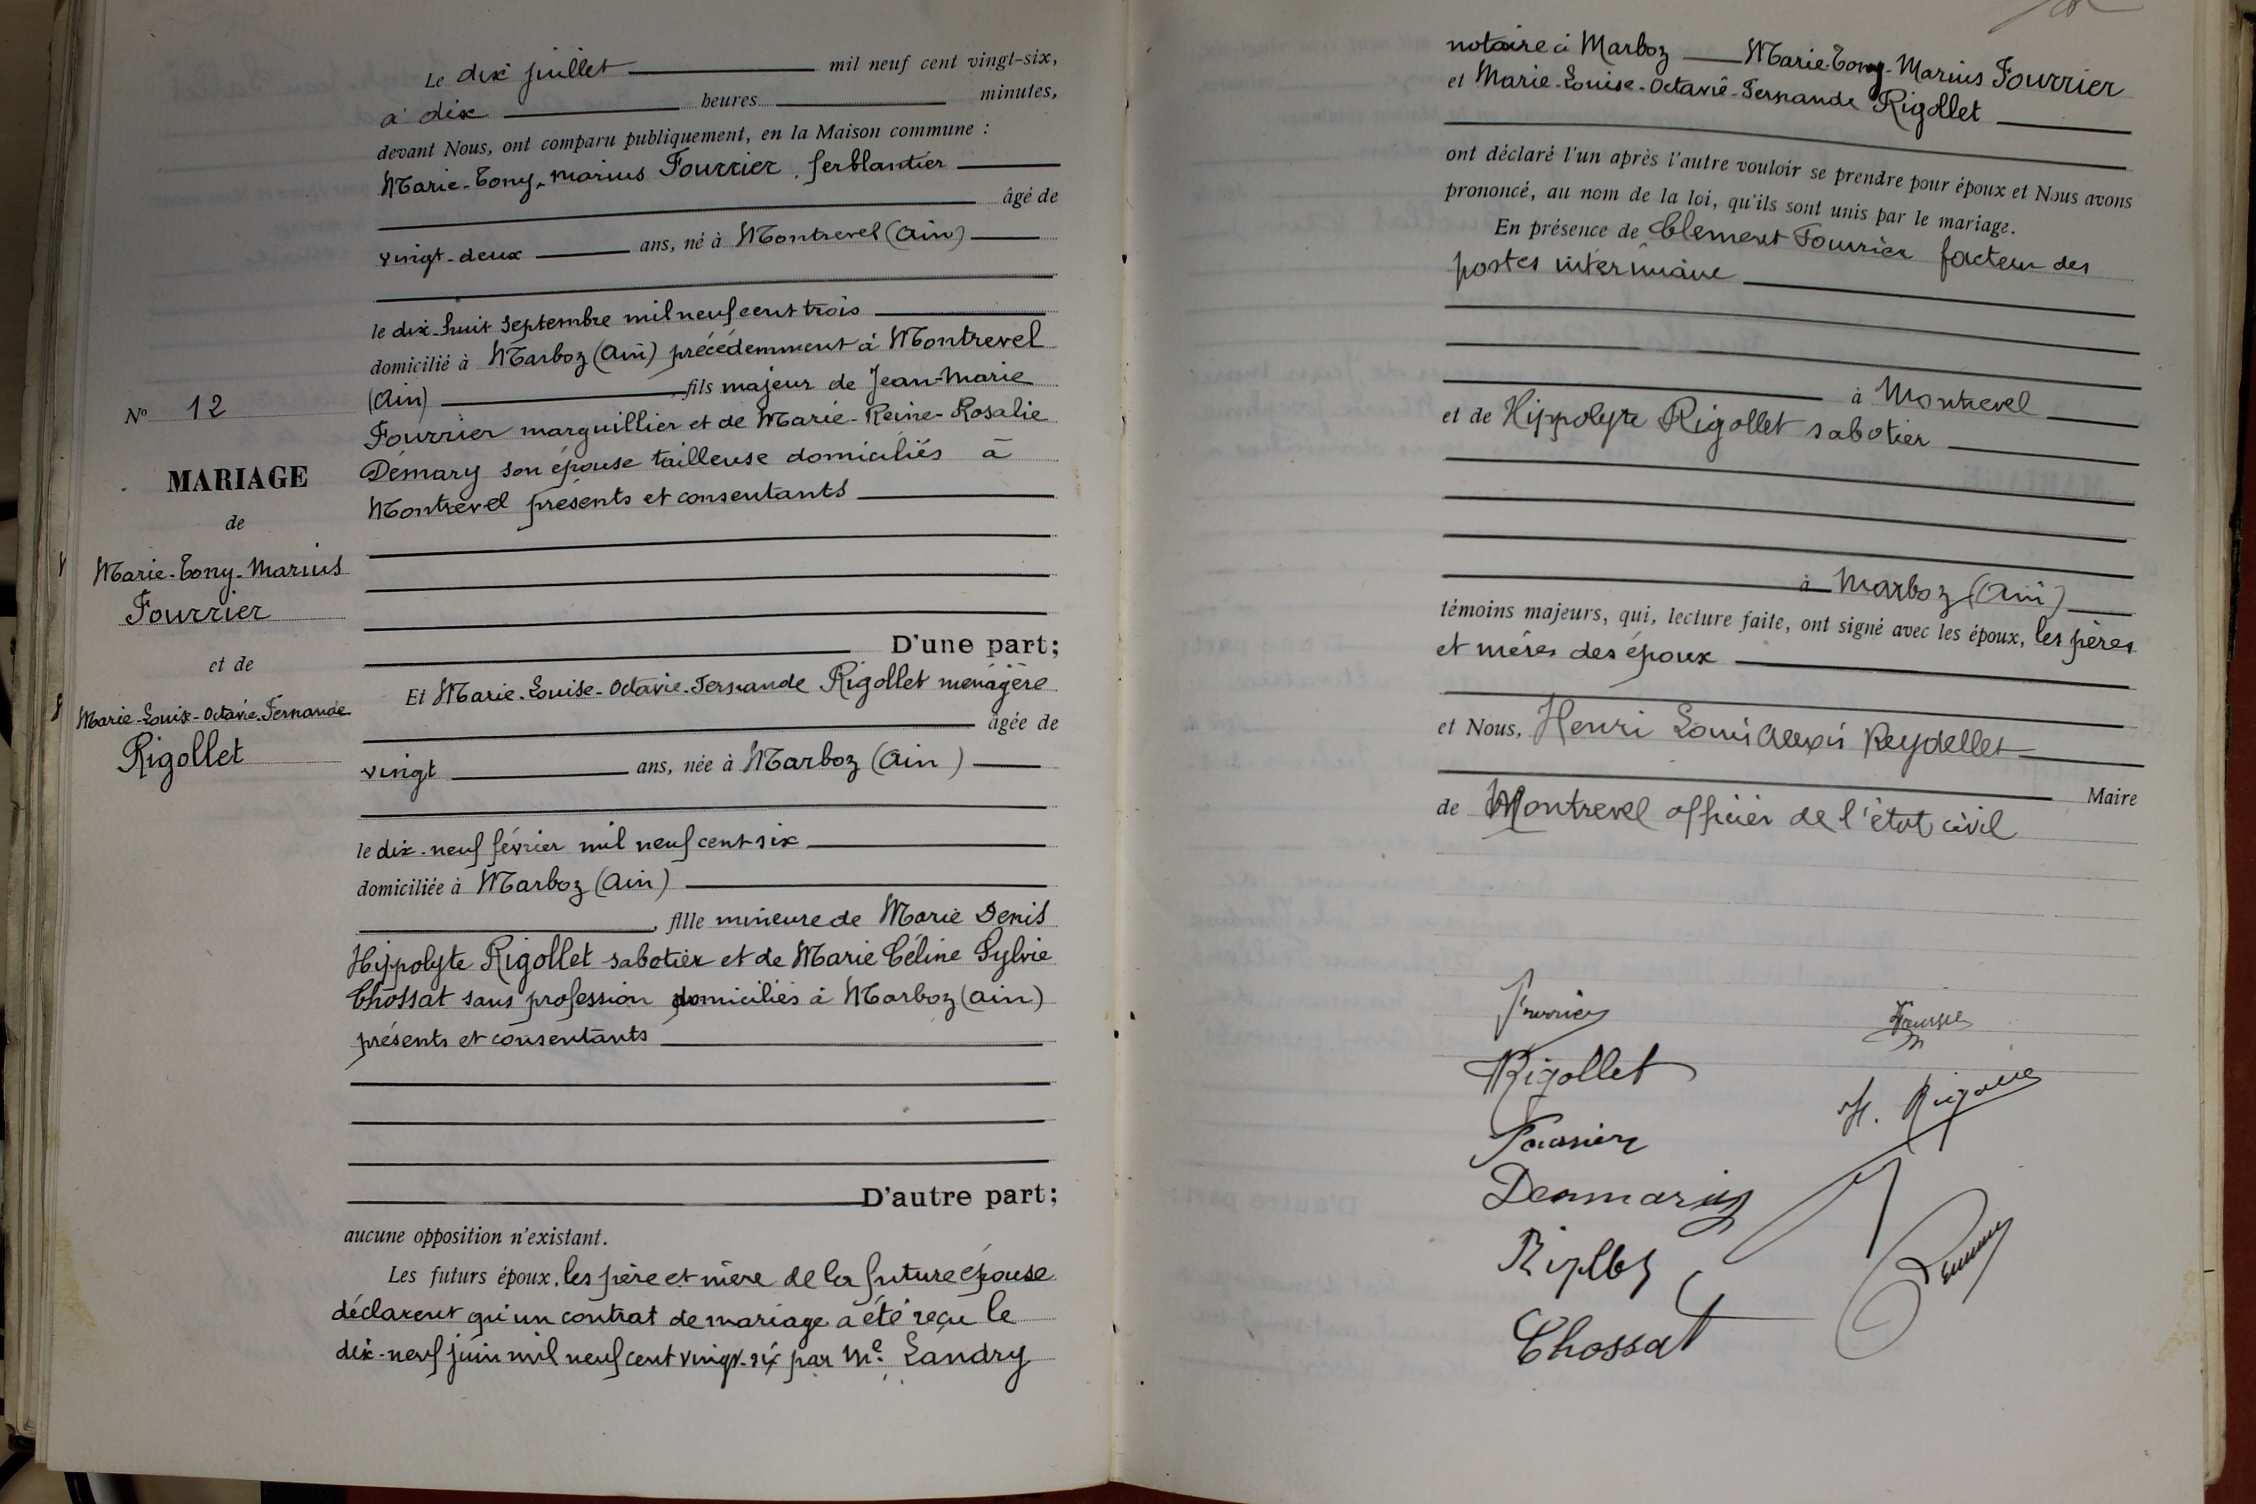 Le dix juillet mil neuf cent vingt-six,
à dix heures minutes,
devant Nous, ont comparu publiquement, en la Maison commune :
Marie-Tony-Marius Fourrier, ferblantier
âgé de
vingt-deux ans, né à Montrevel (Ain)
le dix-huit septembre mil neuf cent trois
domicilié à Marboz (Ain) précédemment à Montrevel
(Ain) , fils majeur de Jean-Marie
Fourrier marguillier et de Marie-Reine-Rosalie
Démary son épouse tailleuse domiciliés à
Montrevel présents et consentants
D'une part;
Et Marie-Louise-Octavie-Fernande Rigollet ménagère
âgée de
vingt ans, née à Marboz (Ain)
le dix-neuf février mil neuf cent six
domiciliée à Marboz (Ain)
, fille mineure de Marie Denis
Hippolyte Rigollet sabotier et de Marie Céline Sylvie
Chossat sans profession domiciliés à Marboz (Ain)
présents et consentants
D'autre part;
aucune opposition n'existant.
Les futurs époux, les père et mère de la future épouse
déclarent qu'un contrat de mariage a été reçu le
dix-neuf juin mil neuf cent vingt-six par Me. Landry
Nº 12
MARIAGE
de
Marie-Tony-Marius
Fourrier
et de
Marie-Louise-Octavie-Fernande
Rigollet
notaire à Marboz Marie-Tony-Marius Fourrier
et Marie-Louise-Octavie-Fernande Rigollet
ont déclaré l'un après l'autre vouloir se prendre pour époux et Nous avons
prononcé, au nom de la loi, qu'ils sont unis par le mariage.
En présence de Clement Fourrier facteur des
postes intérimaire
à Montrevel
et de Hippolyte Rigollet sabotier
à Marboz (Ain)
témoins majeurs, qui, lecture faite, ont signé avec les époux, les pères
et mères des époux
et Nous, Henri Louis Alexis Reydellet
Maire
de Montrevel officier de l'état civil
Fourrier
Rigollet
H. Rigollet
Fourrier
Chossat